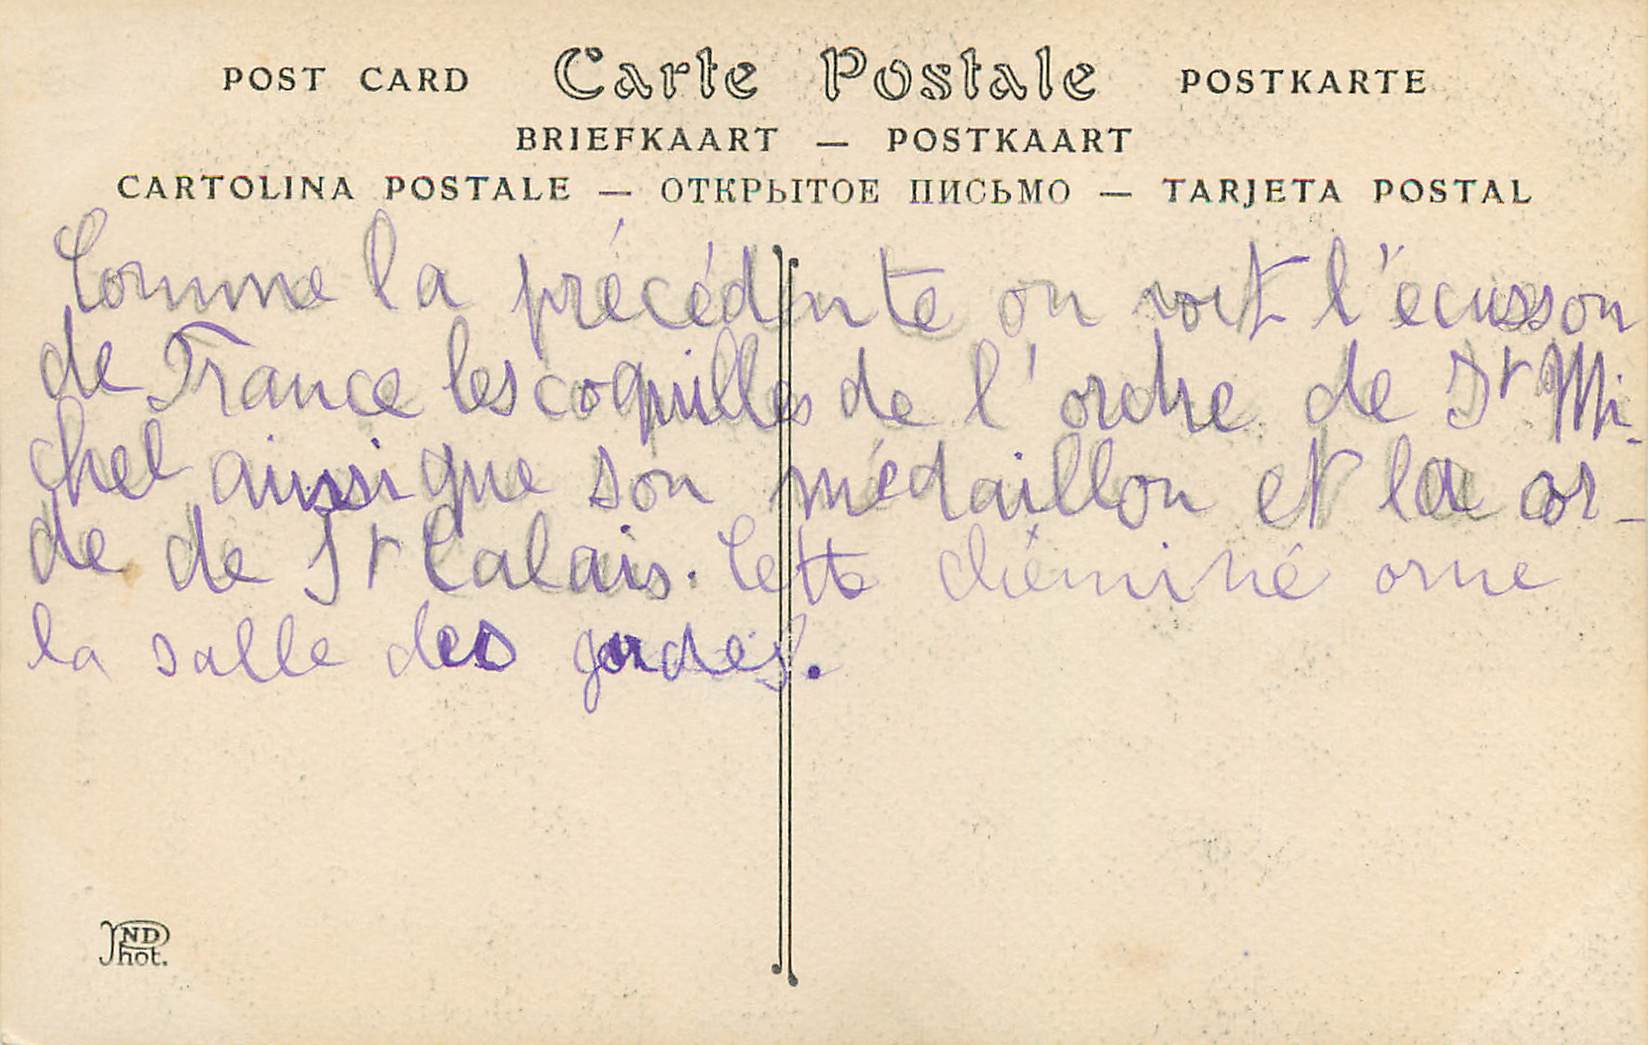 POST CARD Carte Postale POSTKARTE
BRIEFKAART — POSTKAART
CARTOLINA POSTALE — ОТКРЫТОЕ ПИСЬМО — TARJETA POSTAL
Comme la précédente on voit l'écusson
de France les coquilles de l'ordre de St Mi-
chel ainssi que son médaillon et la cor-
de de St Calais. Cette chéminé orne
la salle des gardes.
ND
Phot.